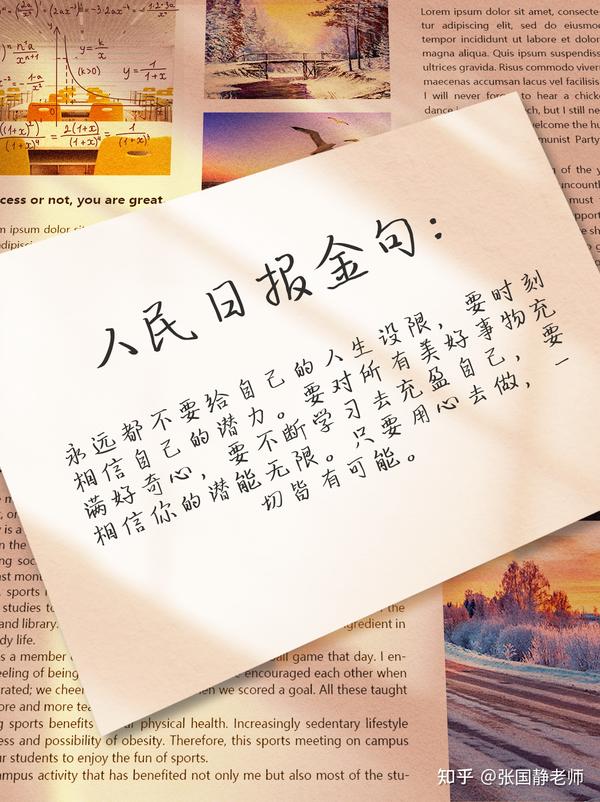 n²a
y = k/x
(k>0)
y = 1/(1+x)
Lorem ipsum dolor sit amet, consecte
tur adipiscing elit, sed do eiusmod
tempor incididunt ut labore et dolor
magna aliqua. Quis ipsum suspendiss
ultrices gravida. Risus commodo viver
maecenas accumsan lacus vel facilisis
I will never to hear a chick
dance but I still ne
welcome the hu
munist Party
of the y
uncounth
must
cess or not, you are great
m ipsum dolor sit
dipiscin
人民日报金句:
永远都不要给自己的人生设限,要时刻
相信自己的潜力。要对所有美好事物充
满好奇心,要不断学习去充盈自己,要
相信你的潜能无限。只要用心去做,一
切皆有可能。
y is a
n the
ing soc
ast mon
, sports
studies to the
and library. ngredient in
dy life.
s a member ball game that day. I en-
eeling of being encouraged each other when
rated; we cheer hen we scored a goal. All these taught
ore and more tea
g sports benefits physical health. Increasingly sedentary lifestyle
ess and possibility of obesity. Therefore, this sports meeting on campus
ur students to enjoy the fun of sports.
ampus activity that has benefited not only me but also most of the stu-
知乎 @张国静老师